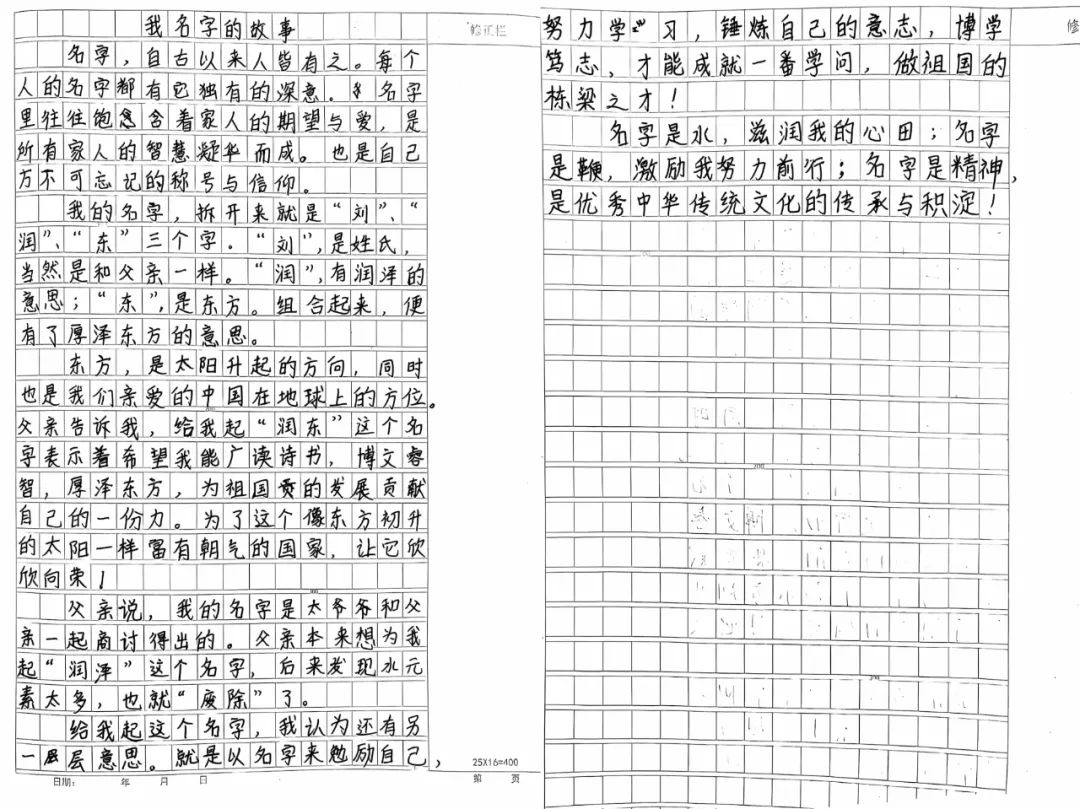 我名字的故事
修正栏
名字，自古以来人皆有之。每个
人的名字都有它独有的深意。名字
里往往饱含着家人的期望与爱，是
所有家人的智慧凝华而成。也是自己
方不可忘记的称号与信仰。
我的名字，拆开来就是“刘”、“
润”、“东”三个字。“刘”，是姓氏，
当然是和父亲一样。“润”，有润泽的
意思；“东”，是东方。组合起来，便
有了厚泽东方的意思。
东方，是太阳升起的方向，同时
也是我们亲爱的中国在地球上的方位。
父亲告诉我，给我起“润东”这个名
字表示着希望我能广读诗书，博文睿
智，厚泽东方，为祖国的发展贡献
自己的一份力。为了这个像东方初升
的太阳一样富有朝气的国家，让它欣
欣向荣！
父亲说，我的名字是太爷爷和父
亲一起商讨得出的。父亲本来想为我
起“润泽”这个名字，后来发现水元
素太多，也就“废除”了。
给我起这个名字，我认为还有另
一层意思。就是以名字来勉励自己，
日期： 年 月 日
25X16=400
第 页
修
努力学习，锤炼自己的意志，博学
笃志，才能成就一番学问，做祖国的
栋梁之才！
名字是水，滋润我的心田；名字
是鞭，激励我努力前行；名字是精神，
是优秀中华传统文化的传承与积淀！